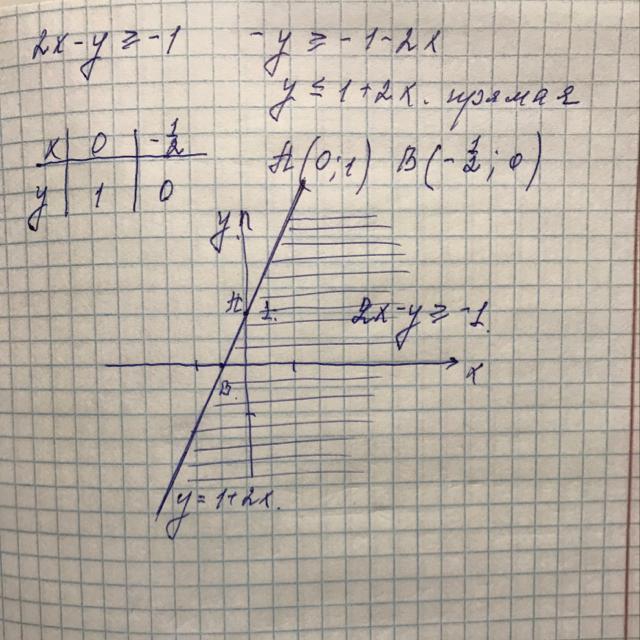 2x-y ≥ -1   -y ≥ -1-2x
y ≤ 1+2x. прямая
x | 0 | -1/2
y | 1 | 0
A(0;1) B(-1/2; 0)
y
A 1.
2x-y ≥ -1.
x
B.
y = 1+2x.